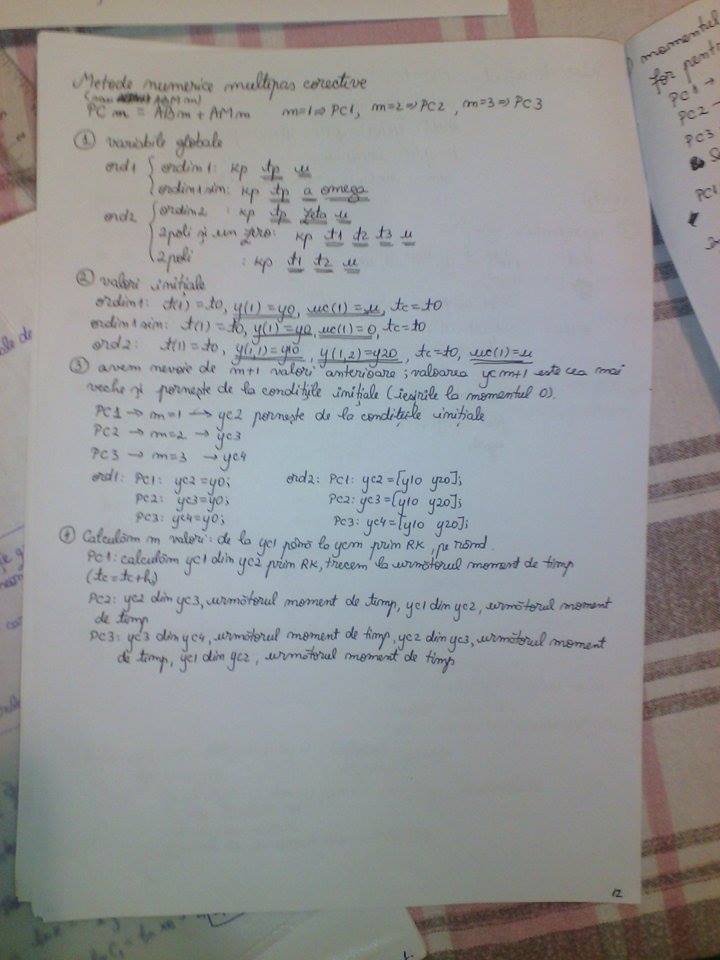 Metode numerice multipas corective
(sau ABMm)
PCm = ABm + AMm m=1 => PC1, m=2 => PC2, m=3 => PC3
① variabile globale
ord1 { ordin1: kp tp u
ordin1sin: kp tp a omega
ord2 { ordin2 : kp tp zeta u
2poli și un zero: kp t1 t2 t3 u
2poli : kp t1 t2 u
② valori inițiale
ordin1: t(1)=t0, y(1)=y0, uc(1)=u, tc=t0
ordin1sin: t(1)=t0, y(1)=y0, uc(1)=0, tc=t0
ord2: t(1)=t0, y(1,1)=y10, y(1,2)=y20, tc=t0, uc(1)=u
③ avem nevoie de m+1 valori anterioare; valoarea ycm+1 este cea mai
veche și pornește de la condițiile inițiale (ieșirile la momentul 0).
PC1 → m=1 → yc2 pornește de la condițiile inițiale
PC2 → m=2 → yc3
PC3 → m=3 → yc4
ord1: PC1: yc2=y0; ord2: PC1: yc2=[y10 y20];
PC2: yc3=y0; PC2: yc3=[y10 y20];
PC3: yc4=y0; PC3: yc4=[y10 y20];
④ Calculăm m valori: de la yc1 până la ycm prin RK, pe rând.
PC1: calculăm yc1 din yc2 prin RK, trecem la următorul moment de timp
(tc=tc+h)
PC2: yc2 din yc3, următorul moment de timp, yc1 din yc2, următorul moment
de timp
PC3: yc3 din yc4, următorul moment de timp, yc2 din yc3, următorul moment
de timp, yc1 din yc2, următorul moment de timp
12
momentul
for pent
PC1 →
PC2 →
PC3
PC1